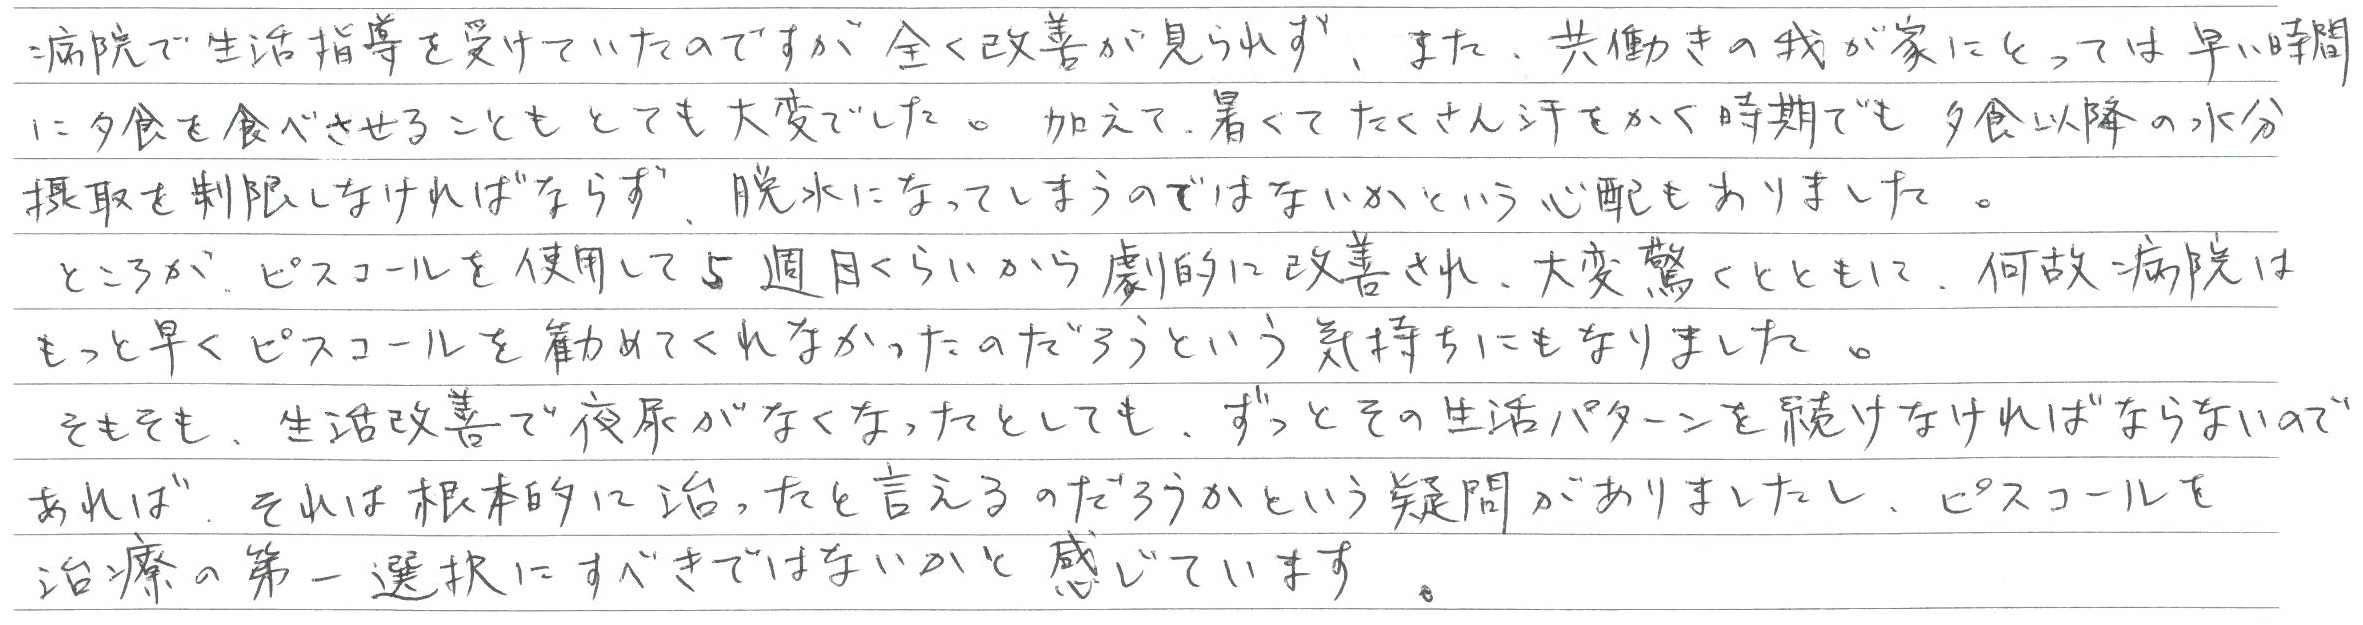 病院で生活指導を受けていたのですが全く改善が見られず、また、共働きの我が家にとっては早い時間
に夕食を食べさせることもとても大変でした。加えて、暑くてたくさん汗をかく時期でも夕食以降の水分
摂取を制限しなければならず、脱水になってしまうのではないかという心配もありました。
ところが、ピスコールを使用して5週目くらいから劇的に改善され、大変驚くとともに、何故病院は
もっと早くピスコールを勧めてくれなかったのだろうという気持ちにもなりました。
そもそも、生活改善で夜尿がなくなったとしても、ずっとその生活パターンを続けなければならないので
あれば、それは根本的に治ったと言えるのだろうかという疑問がありましたし、ピスコールを
治療の第一選択にすべきではないかと感じています。